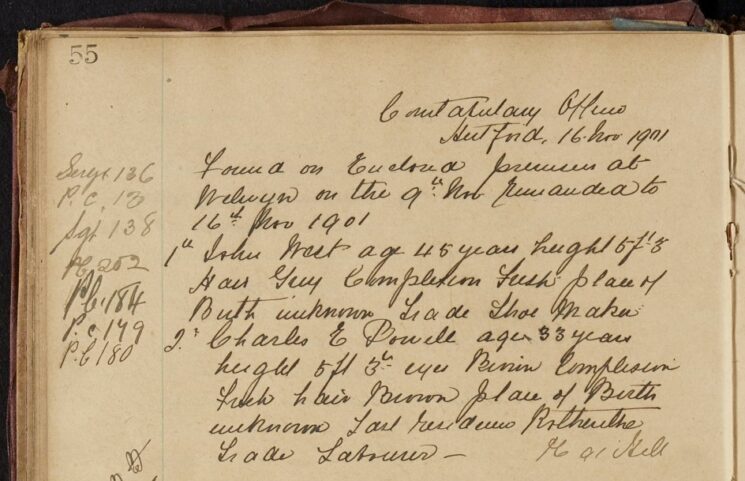 55
Constabulary Office
Hertford, 16 Nov 1901
Sergt 136
P.C. 13
Sgt 138
252
P.C. 184
P.C 179
P.C 180
Found on Enclosed premises at
Welwyn on the 9th Nov Remanded to
16th Nov 1901
1st John West age 45 years height 5ft 3
Hair Grey Complexion Fresh place of
Birth unknown Trade Shoe Maker
2. Charles E Powell age 33 years
height 5ft 3 eyes Brown Complexion
Fresh hair Brown place of Birth
unknown Last residence Rotherhithe
Trade Labourer –